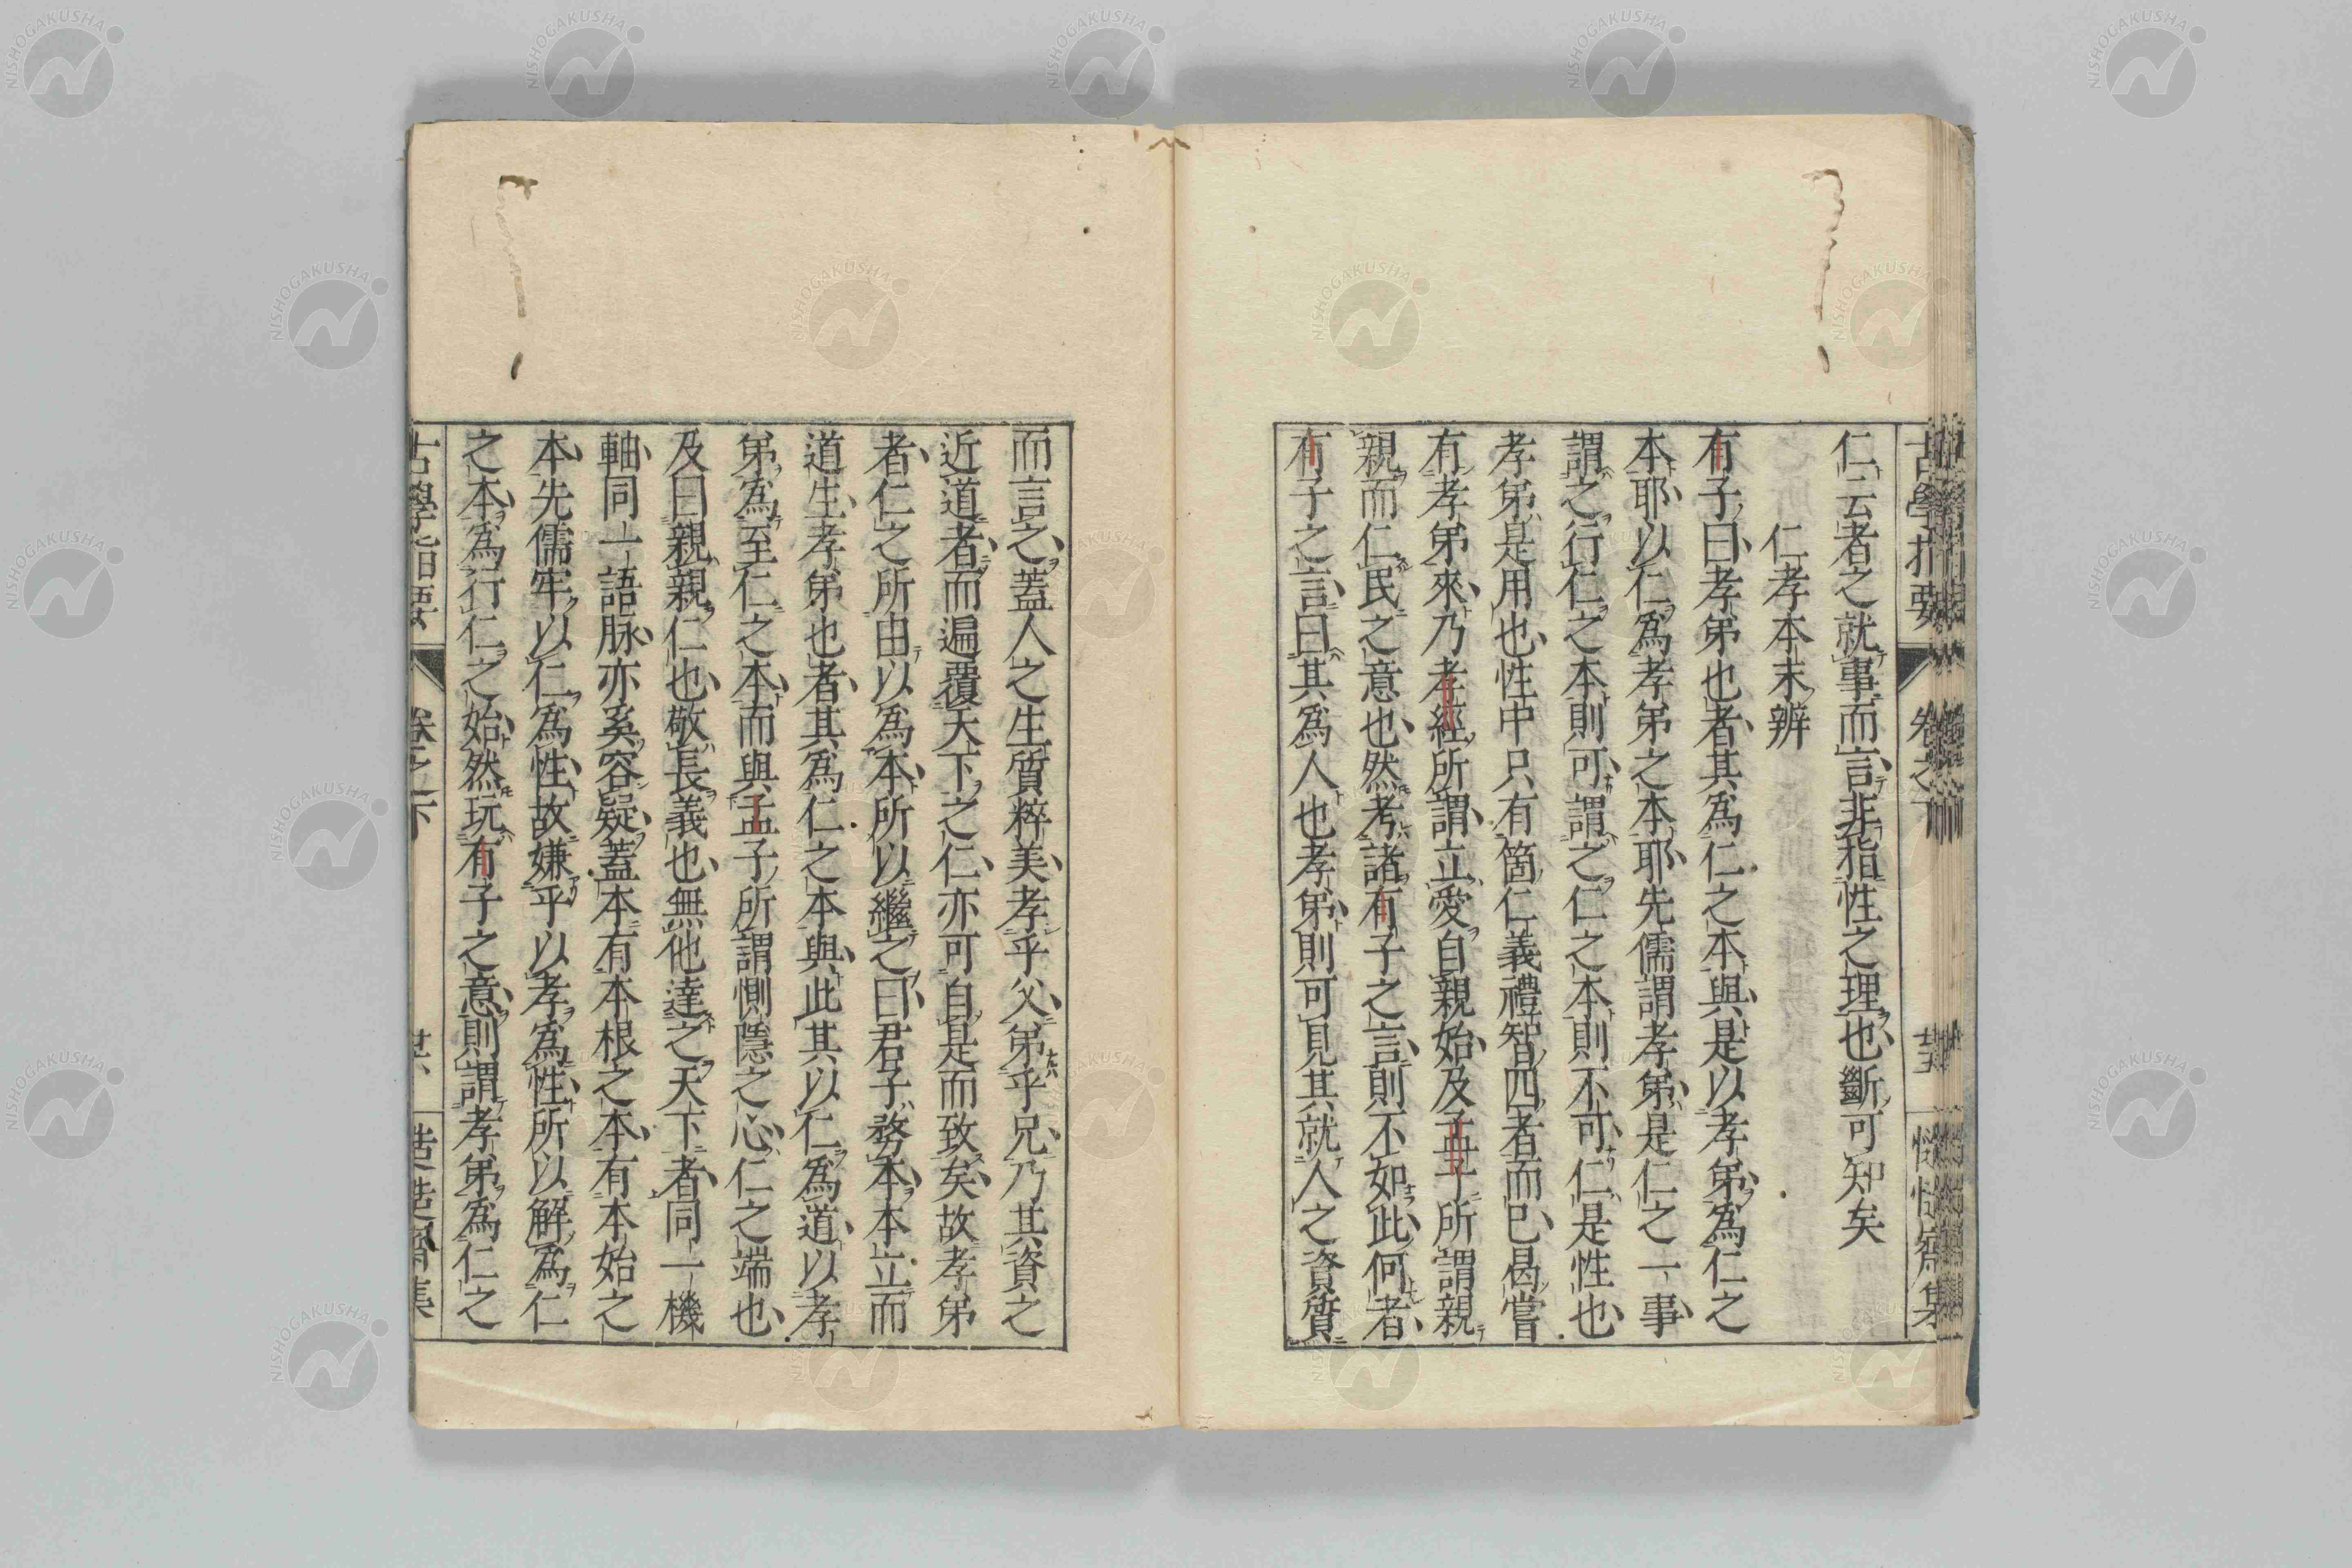 仁云者之就事而言非指性之理也斷可知矣
仁孝本末辨
有子曰孝弟也者其爲仁之本與是以孝弟爲仁之
本耶以仁爲孝弟之本耶先儒謂孝弟是仁之一事
謂之行仁之本則可謂之仁之本則不可仁是性也
孝弟是用也性中只有箇仁義禮智四者而已曷嘗
有孝弟來乃孝經所謂立愛自親始及孟子所謂親
親而仁民之意也然考諸有子之言則不如此何者
有子之言曰其爲人也孝弟則可見其就人之資質
而言之蓋人之生質粹美孝乎父弟乎兄乃其資之
近道者而遍覆天下之仁亦可自是而致矣故孝弟
者仁之所由以爲本所以繼之曰君子務本本立而
道生孝弟也者其爲仁之本與此其以仁爲道以孝
弟爲至仁之本而與孟子所謂惻隱之心仁之端也
及曰親親仁也敬長義也無他達之天下者同一機
軸同一語脉亦奚容疑蓋本有本根之本有本始之
本先儒牢以仁爲性故嫌乎以孝爲性所以解爲仁
之本爲行仁之始然玩有子之意則謂孝弟爲仁之
古學指要
卷之下